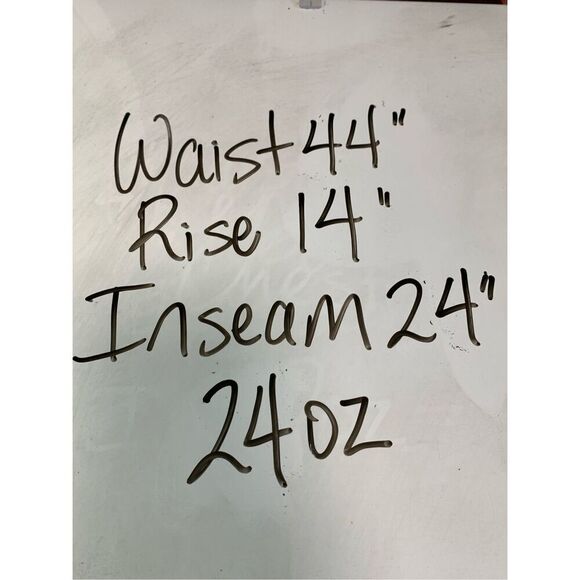 Waist 44"
Rise 14"
Inseam 24"
24oz